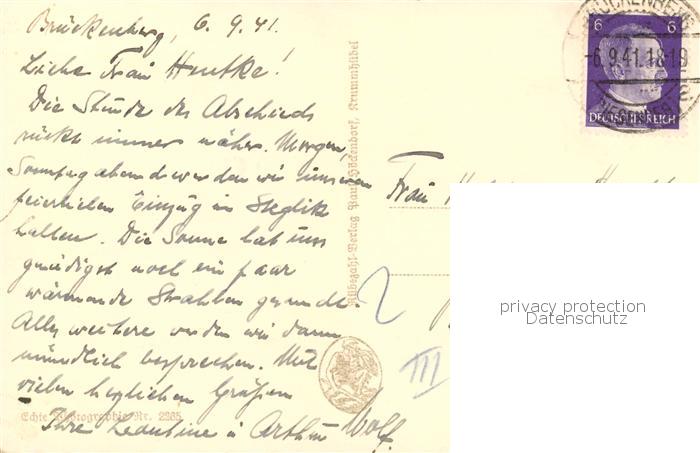 Brückenberg, 6.9.41.
Liebe Frau Hentke!
Die Stunde des Abschieds
rückt immer näher. Morgen,
Sonntag abend werden wir unseren
feierlichen Einzug in Steglitz
halten. Die Sonne hat uns
gnädigst noch ein paar
wärmende Strahlen gesandt.
Alles weitere werden wir dann
mündlich besprechen. Mit
vielen herzlichen Grüßen
Ihre Leontine u Arthur Wolf.
Echte Photographie Nr. 2365
Rübezahl-Verlag Paul Höckendorf, Krummhübel
BRÜCKENBERG
-6.9.41.18-19
6 6
DEUTSCHES REICH
Frau
III
privacy protection
Datenschutz